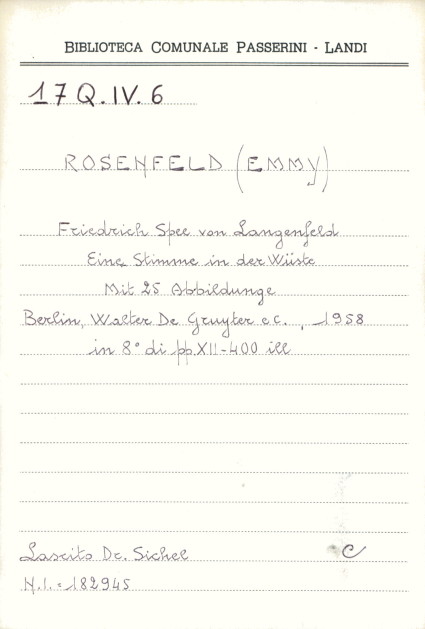 BIBLIOTECA COMUNALE PASSERINI - LANDI
17Q.IV.6
ROSENFELD (EMMY)
Friedrich Spee von Langenfeld
Eine Stimme in der Wüste
Mit 25 Abbildunge
Berlin, Walter De Gruyter e C. , 1958
in 8° di pp. XII-400 ill
Lascito Dr. Sichel C
N.I. = 182945